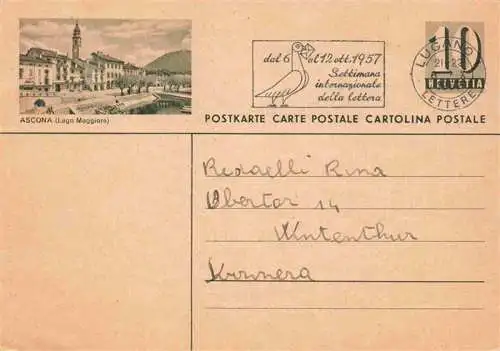 dal 6 al 12 ott. 1957
Settimana
internazionale
della lettera
LUGANO
LETTERE
10
HELVETIA
ASCONA (Lago Maggiore)
POSTKARTE CARTE POSTALE CARTOLINA POSTALE
Redaelli Rina
Obertor 14
Wintenthur